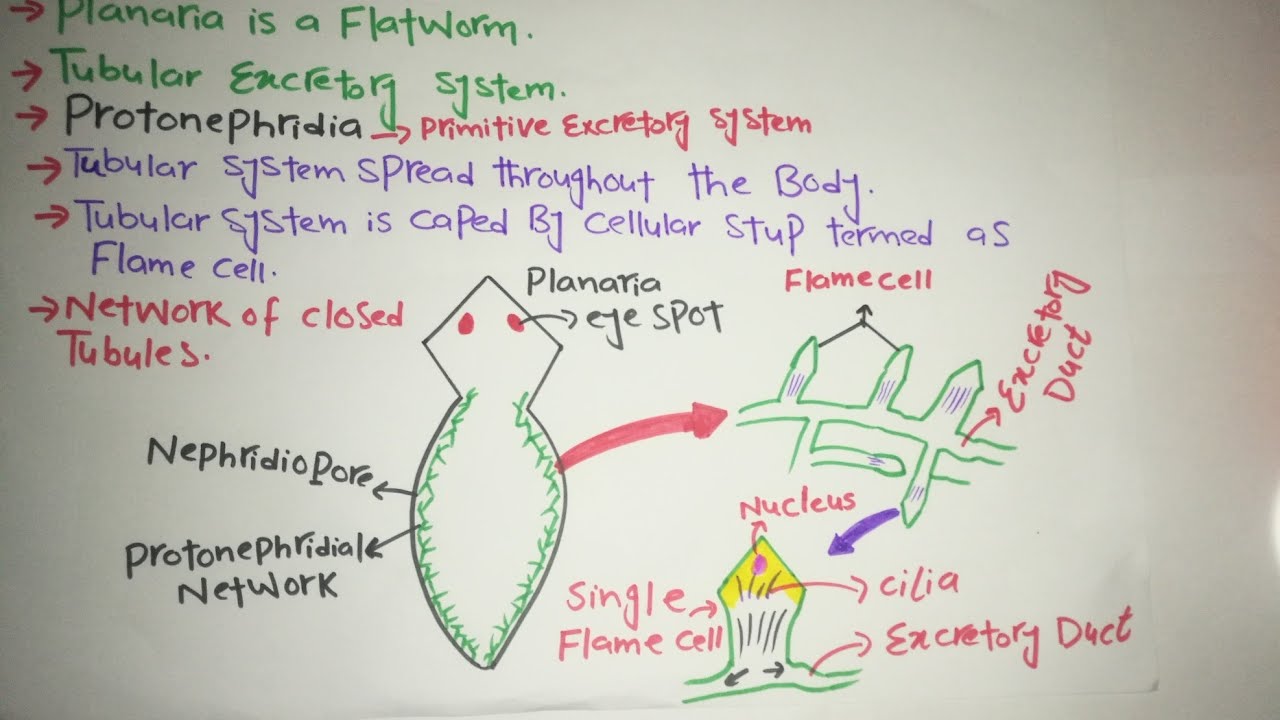 → Planaria is a Flatworm.
→ Tubular Excretory system.
→ Protonephridia → Primitive Excretory system
→ Tubular system spread throughout the Body.
→ Tubular system is caped By cellular stup termed as
Flame cell.
→ Network of closed
Tubules.
Planaria
eye spot
Flame cell
Excretory
Duct
Nephridiopore
Protonephridial
Network
Nucleus
Single
Flame cell
cilia
Excretory Duct